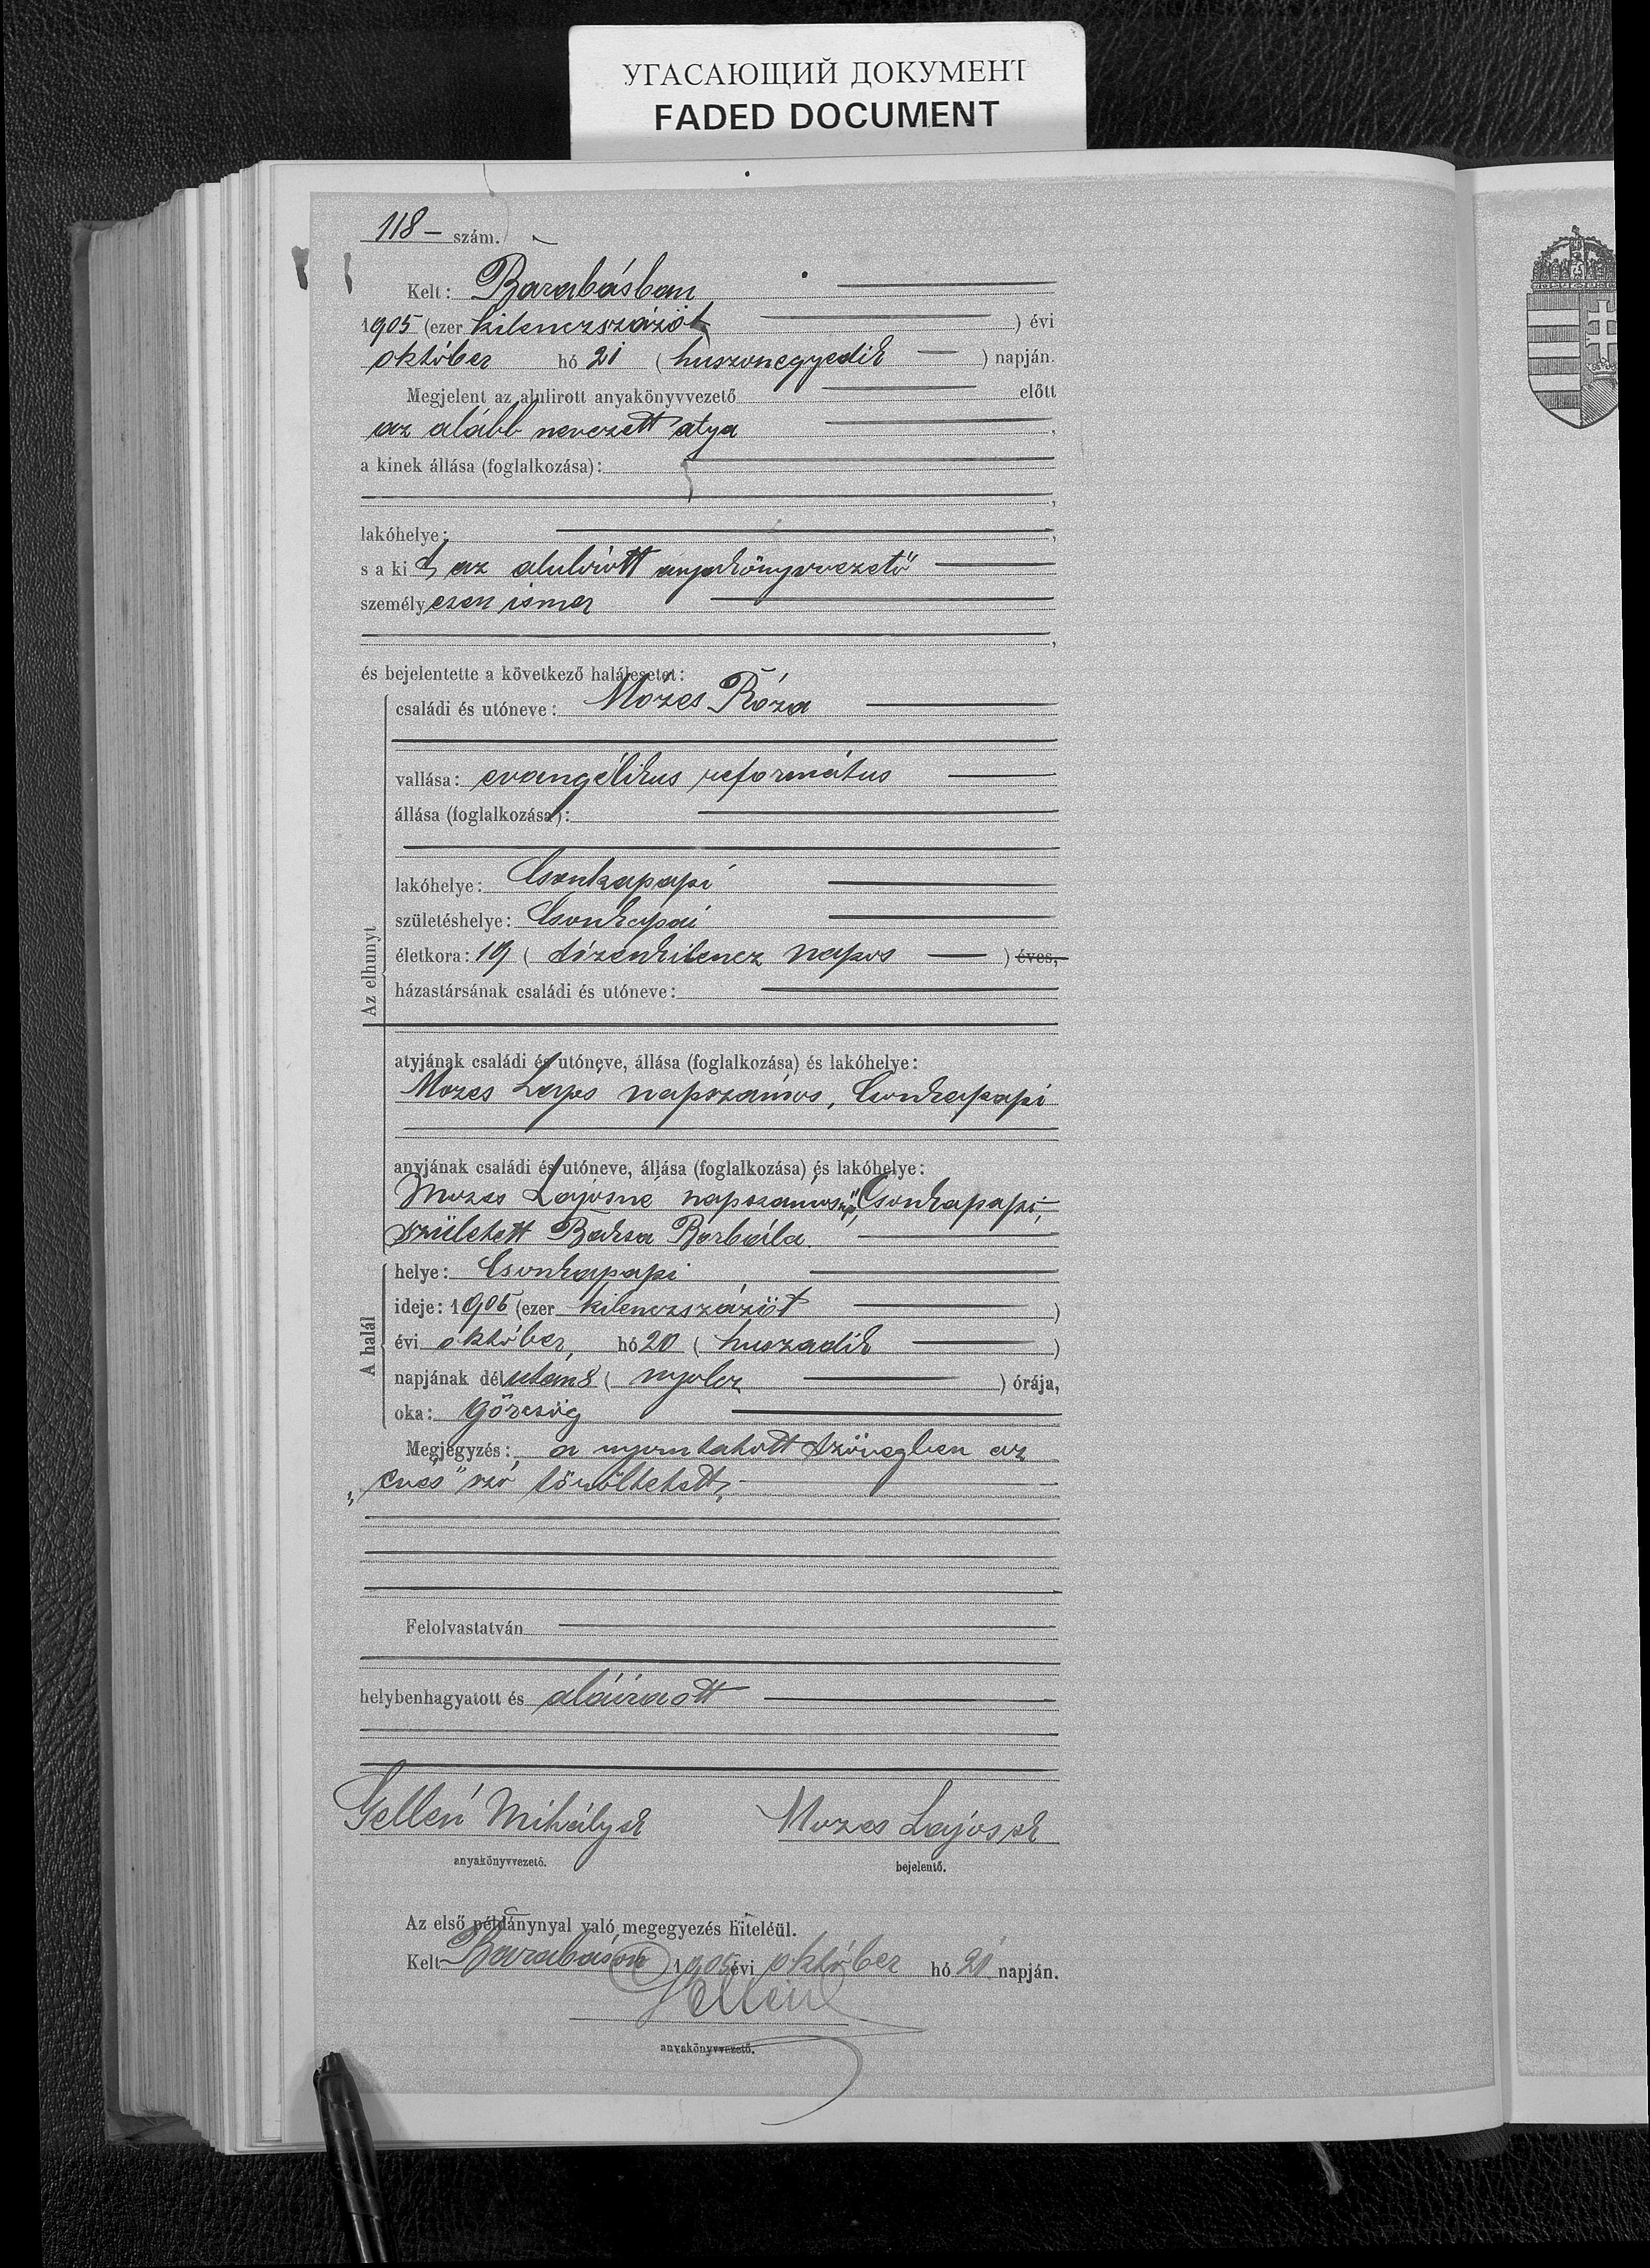 УГАСАЮЩИЙ ДОКУМЕНТ
FADED DOCUMENT
118 – szám.
Kelt: Barabásban
1905 (ezer kilenczszázöt ) évi
október hó 21 ( huszonegyedik ) napján.
Megjelent az alulirott anyakönyvvezető előtt
az alább nevezett atya ,
a kinek állása (foglalkozása):
,
lakóhelye: ,
s a ki t az alulirott anyakönyvvezető
személyesen ismer
,
és bejelentette a következő halálesetet:
családi és utóneve: Mozes Róza
vallása: evangélikus református
állása (foglalkozása):
lakóhelye: Csonkapapi
születéshelye: Csonkapai
életkora: 19 ( tizenkilencz napos ) éves,
Az elhunyt
házastársának családi és utóneve:
atyjának családi és utóneve, állása (foglalkozása) és lakóhelye:
Mozes Lajos napszámos, Csonkapapi
anyjának családi és utóneve, állása (foglalkozása) és lakóhelye:
Mozes Lajosné napszámosnő, Csonkapapi,
született Borbála.
helye: Csonkapapi
ideje: 1905 (ezer kilenczszázöt )
évi október hó 20 ( huszadik )
A halál
napjának délután 8 ( nyolcz ) órája,
oka: görcsög
Megjegyzés: a nyomtatott szövegben az
„éves" szó töröltetett,
Felolvastatván
helybenhagyatott és aláíratott
Gellén Mihály sk Mozes Lajos sk
anyakönyvvezető. bejelentő.
Az első példánynyal való megegyezés hiteléül.
Kelt Barabáson 1905 évi október hó 21 napján.
Gellén
anyakönyvvezető.